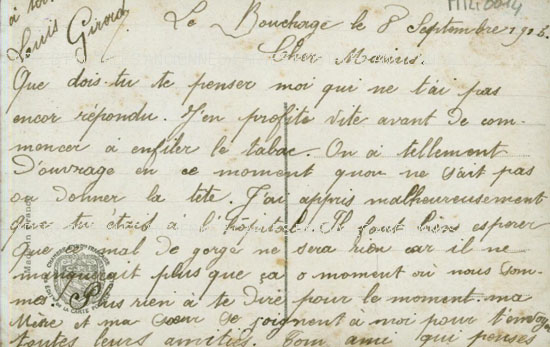 Le Bouchage le 8 Septembre 1915.
Cher Marius.
Que dois-tu te penser moi qui ne t'ai pas
encor répondu. J'en profite vite avant de com-
moncer à enfiler le tabac. On a tellement
d'ouvrage en ce moment quon ne sait pas
ou donner la tête. J'ai appris malheureusement
que tu étais à l'hôpital. Il faut bien esperer
que mal de gorge ne sera rien car il ne
manquerait plus que ça o moment où nous som-
mes. Plus rien à te dire pour le moment. ma
Mère et ma sœur se joignent à moi pour t'envoyer
toutes leurs amitiés. Ton ami qui penses
à toi
Louis Giroud